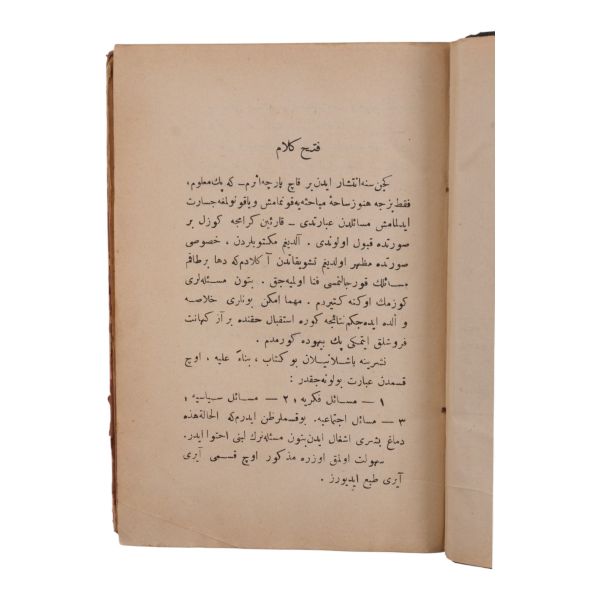 فتح كلام
كچن سنه انتشار ايدن بر قاچ پارچه اثرم ـ كه پك معلوم،
فقط بزجه هنوز ساحهٔ مباحثه‌يه قونمامش وياقونولمغه جسارت
ايدلمامش مسائلدن عبارتدى ـ قارئين كرامجه كوزل بر
صورتده قبول اولوندى . آلديغم مكتوبلردن ، خصوصى
صورتده مظهر اولديغم تشويقاتدن آ كلادم كه دها برطاقم
مسائلك قورجالنمسى فنا اولميه‌جق . بتون مسئله‌لرى
كوزمك اوكنه كتيردم . مهما امكن بونلرى خلاصه
و الده ايده‌جكم نتائجه كوره استقبال حقنده بر آز كهانت
فروشلق ايتمكى پك بيهوده كورمدم .
نشرينه باشلانيلان بو كتاب ، بناءً عليه ، اوچ
قسمدن عبارت بولونه‌جقدر :
١ — مسائل فكريه ، ٢ — مسائل سياسيه ،
٣ — مسائل اجتماعيه . بوقسملرظن ايدرم كه الحالة هذه
دماغ بشرى اشغال ايدن بتون مسئله‌لرك لبنى احتوا ايدر.
سهولت اولمق اوزره مذكور اوچ قسمى آيرى
آيرى طبع ايديورز .